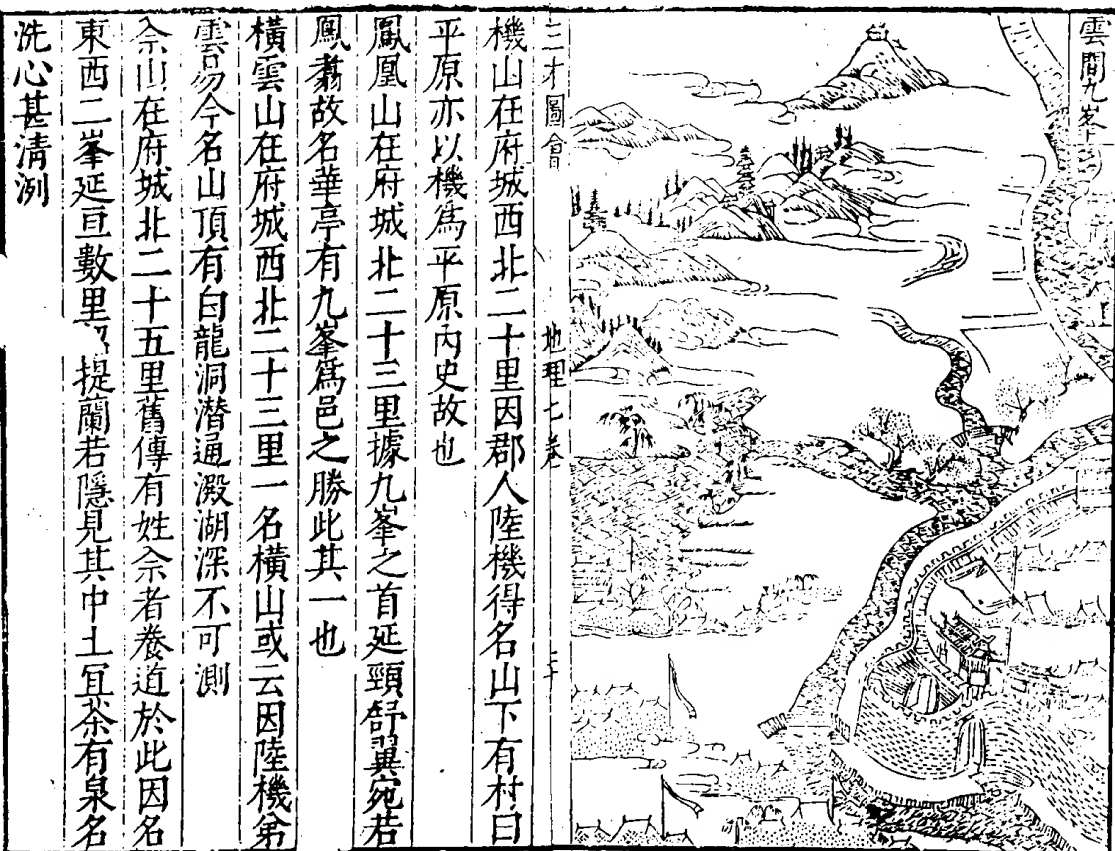 雲間九峯
三才圖會
地理七卷
機山在府城西北二十里因郡人陸機得名山下有村曰
平原亦以機爲平原內史故也
鳳凰山在府城北二十三里據九峯之首延頸舒翼宛若
鳳翥故名華亭有九峯爲邑之勝此其一也
橫雲山在府城西北二十三里一名橫山或云因陸機弟
雲易今名山頂有白龍洞潛通澱湖深不可測
佘山在府城北二十五里舊傳有姓佘者養道於此因名
東西二峯延亘數里 提蘭若隱見其中土宜茶有泉名
洗心甚清洌